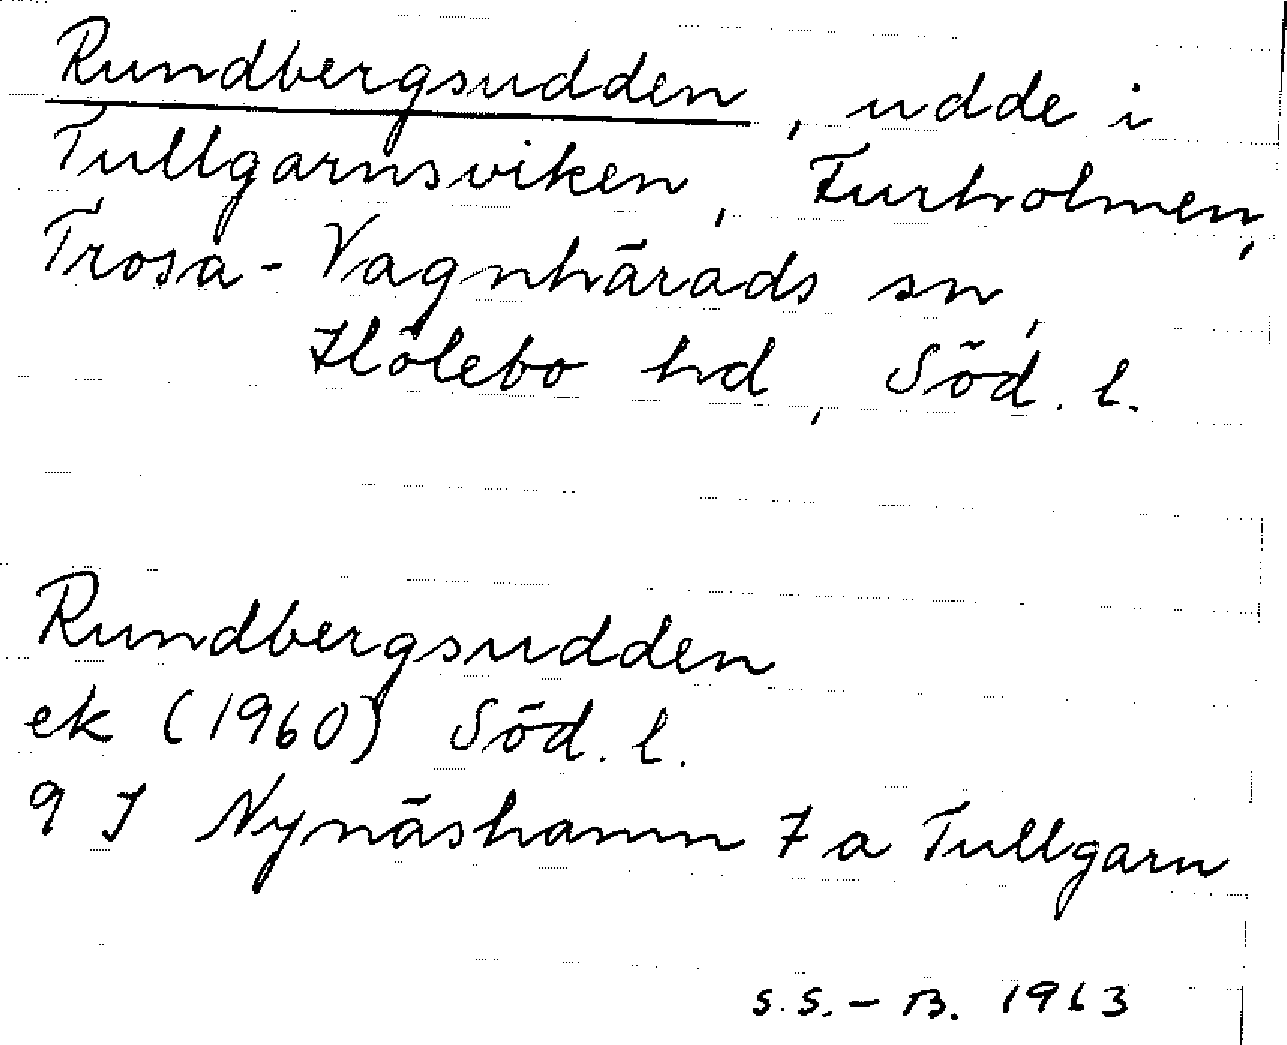 Rundbergsudden, udde i
Tullgarnsviken, Furholmen,
Trosa-Vagnhärads sn,
Hölebo hd, Söd. l.
Rundbergsudden
ek (1960) Söd. l.
9 I Nynäshamn 7 a Tullgarn
S.S.-B. 1963